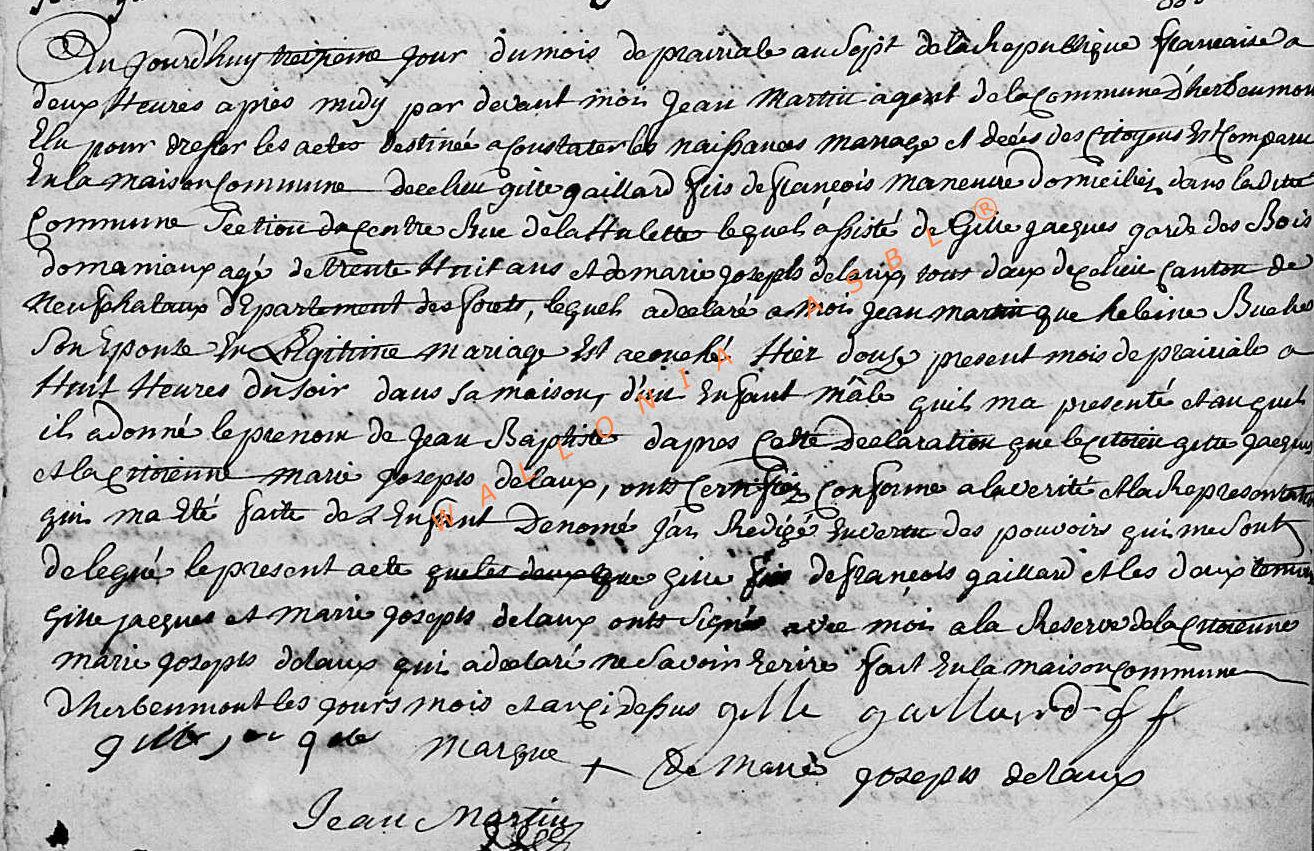 Aujourd'huy treizieme jour du mois de prairiale an sept de la Republique francaise a
deux Heures apres midy par devant moi Jean Martin agent de la Commune D'herbeumon
Elu pour dresser les actes destinée a constater les naissances mariage et deces des Citoyens Est Comparu
En la maison Commune de ce lieu gille gaillard fils de francois maneuvre domicilié dans la ditte
Commune Section du Centre Rue de la Hulette lequel assisté de Gille jacques garde des Bois
domaniaux agé de trente Huit ans et de marie joseph delaux, tous deux de ce lieu Canton de
Neufchataux departement des forets, lequel a declaré a moi jean martin que heleine Buche
Son Epouse En Legitime mariage Est acouché Hier douze present mois de prairiale a
Huit Heures du soir dans sa maison, d'un Enfant mâle quil ma presenté et auquel
il a donné le prenom de jean Baptiste dapres Cette declaration que le Citoien gille jacques
et la Citoienne marie joseph delaux, ont Certifiez Conforme a la verité et la Representation
qui ma Eté faite de L Enfant Denomé jai Redigé En vertu des pouvoirs qui me sont
delegué le present acte que les deux que gille fils de françois gaillard et les deux temoins
gille jacques et marie joseph delaux ont signé avec moi a la Reserve de la Citoienne
marie joseph delaux qui a declaré ne savoir Ecrire fait En la maison Commune
d'herbeumont les jours mois et an ci dessus gille gaillard
gille jacque marque + de marie joseph delaux
Jean Martin
WALLONIA ASBL ®